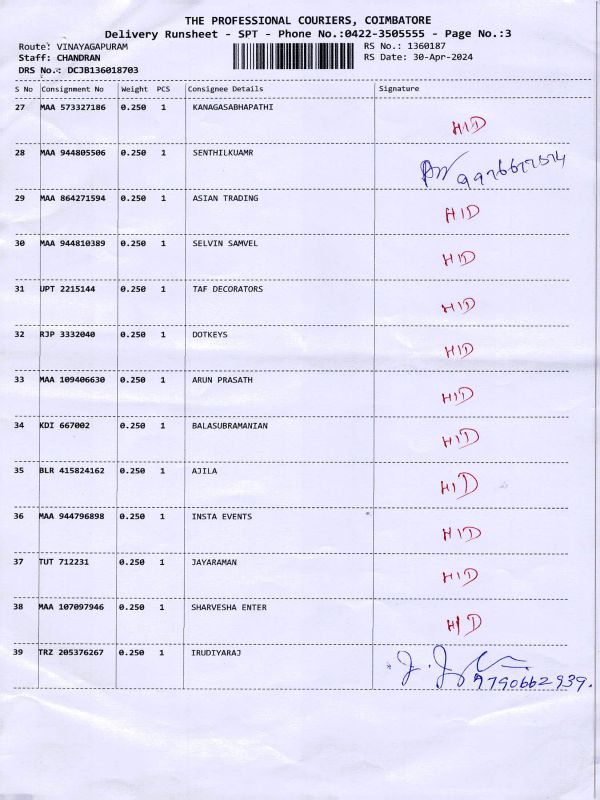 THE PROFESSIONAL COURIERS, COIMBATORE
Delivery Runsheet - SPT - Phone No.:0422-3505555 - Page No.:3
Route: VINAYAGAPURAM RS No.: 1360187
Staff: CHANDRAN RS Date: 30-Apr-2024
DRS No.: DCJB136018703
S No Consignment No Weight PCS Consignee Details Signature
27 MAA 573327186 0.250 1 KANAGASABHAPATHI
HID
28 MAA 944805506 0.250 1 SENTHILKUAMR
29 MAA 864271594 0.250 1 ASIAN TRADING
HID
30 MAA 944810389 0.250 1 SELVIN SAMVEL
HID
31 UPT 2215144 0.250 1 TAF DECORATORS
HID
32 RJP 3332040 0.250 1 DOTKEYS
HID
33 MAA 109406630 0.250 1 ARUN PRASATH
HID
34 KDI 667002 0.250 1 BALASUBRAMANIAN
HID
35 BLR 415824162 0.250 1 AJILA
HID
36 MAA 944796898 0.250 1 INSTA EVENTS
HID
37 TUT 712231 0.250 1 JAYARAMAN
HID
38 MAA 107097946 0.250 1 SHARVESHA ENTER
HID
39 TRZ 205376267 0.250 1 IRUDIYARAJ
9790662939.